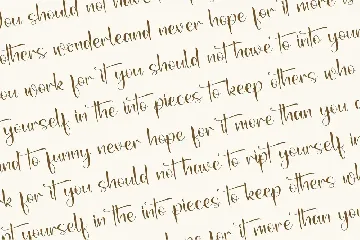 You should not have
others wonderleand never hope for it more is
you work for it you should not have to into your
t yourself in the into pieces to keep others who
and to funny never hope for it more than you
k for it you should not have to ript yourself in
t yourself in the into pieces to keep others wh
hope for it more than you